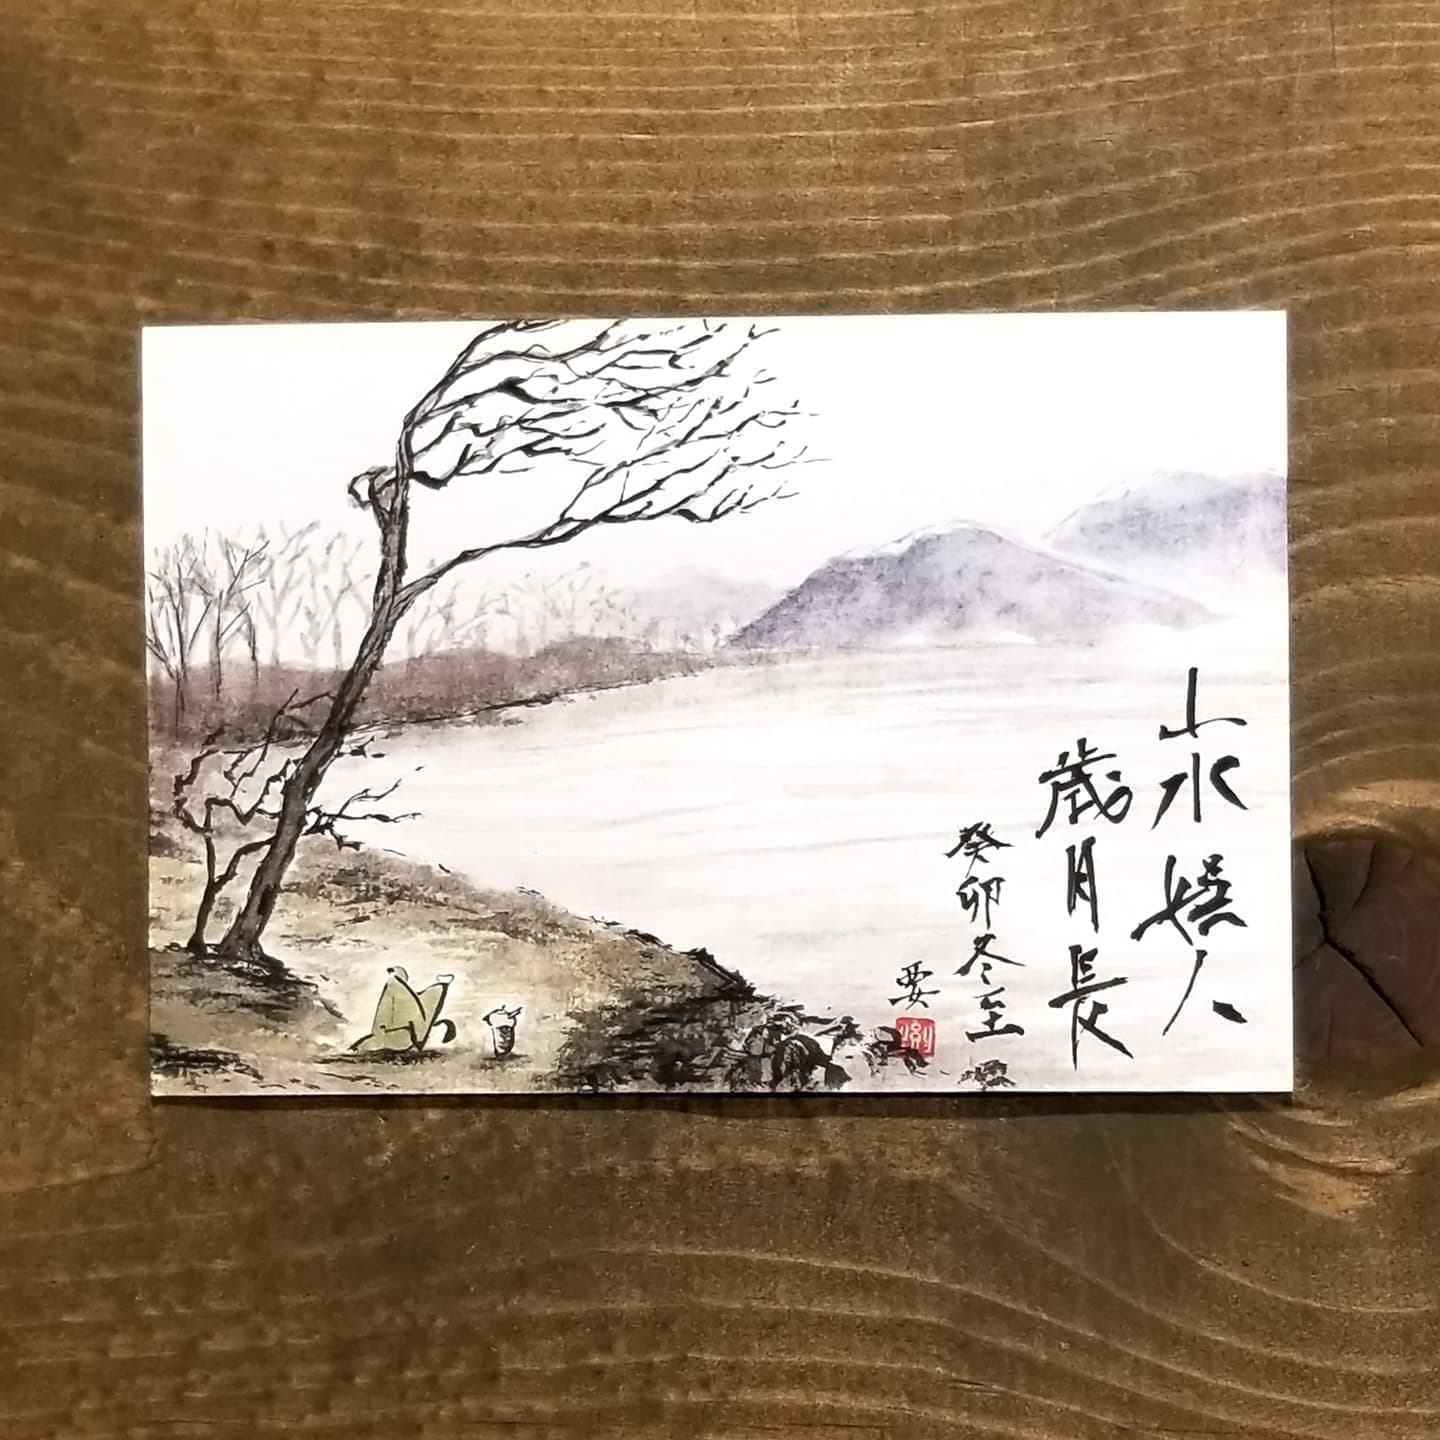 山水娯人
歳月長
癸卯冬至
要